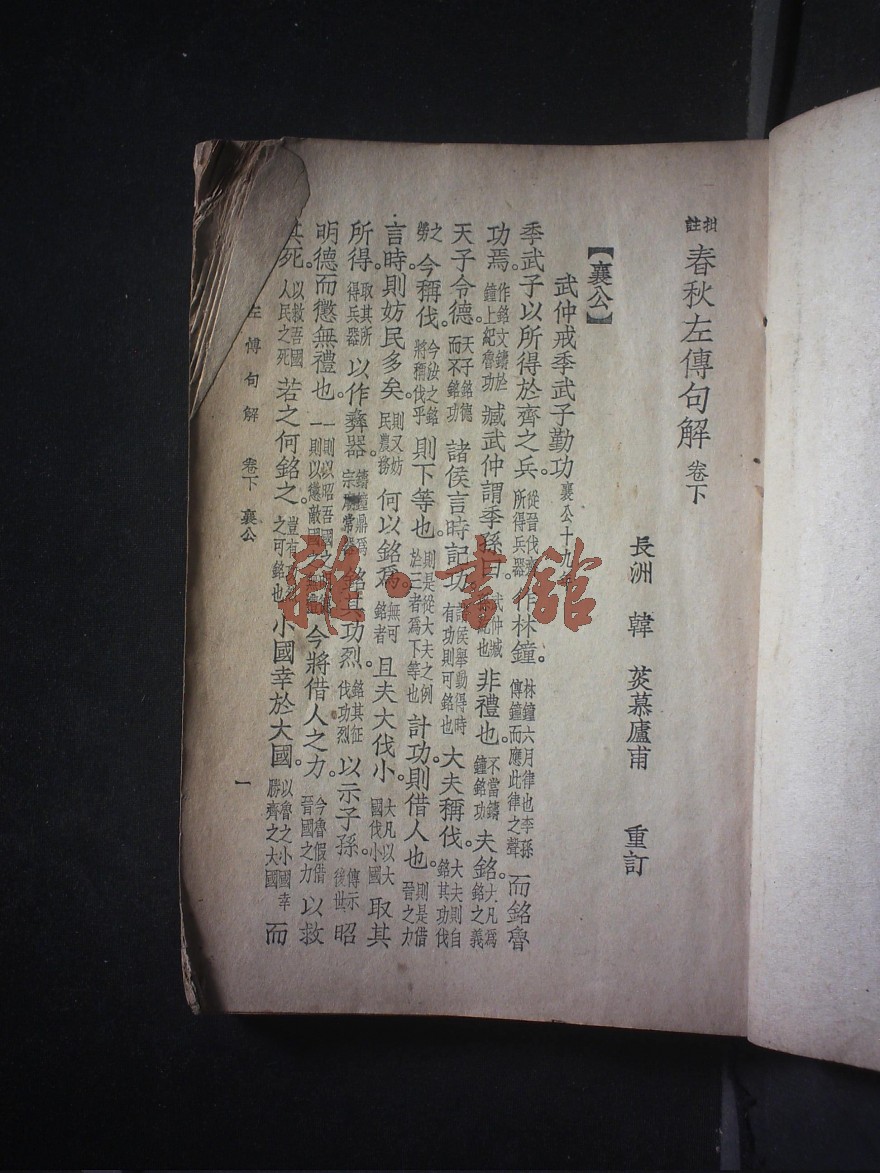 批註 春秋左傳句解 卷下
長洲 韓 菼慕廬甫 重訂
【襄公】
武仲戒季武子勤功 襄公十九
季武子以所得於齊之兵。從晉伐 所得兵器 作林鐘。林鐘六月律也季孫 傳鐘而應此律之聲 而銘魯
功焉。作銘文鑄於 鐘上紀魯功 臧武仲謂季孫曰 武仲臧 也 非禮也。不當鑄 鐘銘功 夫銘。大凡爲 銘之義
天子令德。天子銘德 而不銘功 諸侯言時記功。諸侯舉動得時 有功則可銘也 大夫稱伐。大夫則自 銘其功伐
之 勞 今稱伐。今汝之銘 將稱伐乎 則下等也。則是從大夫之例 於三者爲下等也 計功則借人也。則是借 晉之力
言時則妨民多矣。則又妨 民農務 何以銘爲。無可 銘者 且夫大伐小。大凡以大 國伐小國 取其
所得。取其所 得兵器 以作彝器。鑄鐘鼎爲 宗 常器 銘其功烈。銘其征 伐功烈 以示子孫。傳示 後世 昭
明德而懲無禮也。一則以昭吾國之 一則以懲敵國 今將借人之力。今魯假借 晉國之力 以救
其死。以救吾國 人民之死 若之何銘之。豈有 之可銘也 小國幸於大國。以魯之小國幸 勝齊之大國 而
左傳句解 卷下 襄公 一
雜·書館